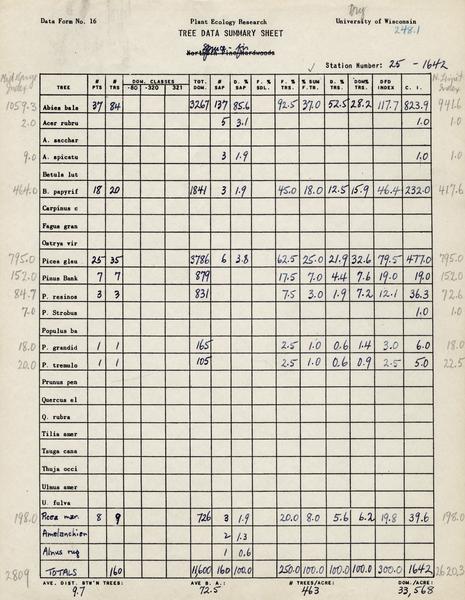 Dry
Data Form No. 16 Plant Ecology Research University of Wisconsin
248.1
TREE DATA SUMMARY SHEET
Spruce - fir
Northern Pine Hardwoods
Station Number: 25 - 1642
Index Index
TREE # PTS # TRS DOM. CLASSES -80 -320 321 TOT. DOM # SAP D. % SAP F. % SDL. F. % TRS. % SUM F.TR. D. % TRS. DOM% TRS. DFD INDEX C. I.
1059.3 Abies bals 37 84 3267 137 85.6 92.5 37.0 52.5 28.2 117.7 823.9 941.6
2.0 Acer rubru 5 3.1 1.0 1.0
A. sacchar
9.0 A. spicatu 3 1.9 1.0 1.0
Betula lut
464.0 B. papyrif 18 20 1841 3 1.9 45.0 18.0 12.5 15.9 46.4 232.0 417.6
Carpinus c
Fagus gran
Ostrya vir
795.0 Picea glau 25 35 3786 6 3.8 62.5 25.0 21.9 32.6 79.5 477.0 795.0
152.0 Pinus Bank 7 7 879 17.5 7.0 4.4 7.6 19.0 19.0 152.0
84.7 P. resinos 3 3 831 7.5 3.0 1.9 7.2 12.1 36.3 72.6
7.0 P. Strobus 1.0 1.0
Populus ba
18.0 P. grandid 1 1 165 2.5 1.0 0.6 1.4 3.0 6.0 18.0
20.0 P. tremulo 1 1 105 2.5 1.0 0.6 0.9 2.5 5.0 22.5
Prunus pen
Quercus el
Q. rubra
Tilia amer
Tsuga cana
Thuja occi
Ulmus amer
U. fulva
198.0 Picea mar. 8 9 726 3 1.9 20.0 8.0 5.6 6.2 19.8 39.6 198.0
Amelanchier 2 1.3
Alnus rug 1 0.6
2809 TOTALS 160 11,600 160 100.0 250.0 100.0 100.0 100.0 300.0 1642 2620.3
AVE. DIST. BTW'N TREES: AVE B. A.: # TREES/ACRE: DOM./ACRE:
9.7 72.5 463 33,568